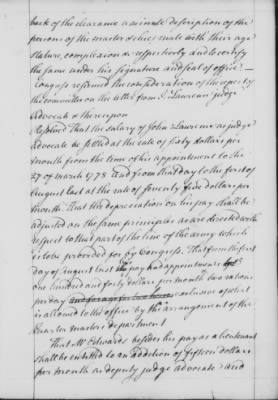 back of the clearance a minute description of the
persons of the master & chief mate with their age
stature, complexion & respectively and to certify
the same under his signature and seal of office —
Congress resumed the consideration of the report of
the committee on the letter from J. Laurence judge
advocate & thereupon
Resolved That the salary of John Laurence as judge
advocate be settled at the rate of sixty dollars per
month from the time of his appointment to the
27 of march 1778 and from that day to the first of
August last at the rate of seventy five dollars per
month. That the depreciation on his pay shall be
adjusted on the same principles as are directed with
respect to that part of the line of the army which
is to be provided for by Congress. That from the first
day of august last pay and appointments be
one hundred and forty dollars per month two rations
per day and forage for two horses exclusive of what
is allowed to the office by the arrangement of the
Quarter masters department
That Mr Edwards besides his pay as a lieutenant
shall be entitled to an addition of fifteen dollars
per month as deputy judge advocate and